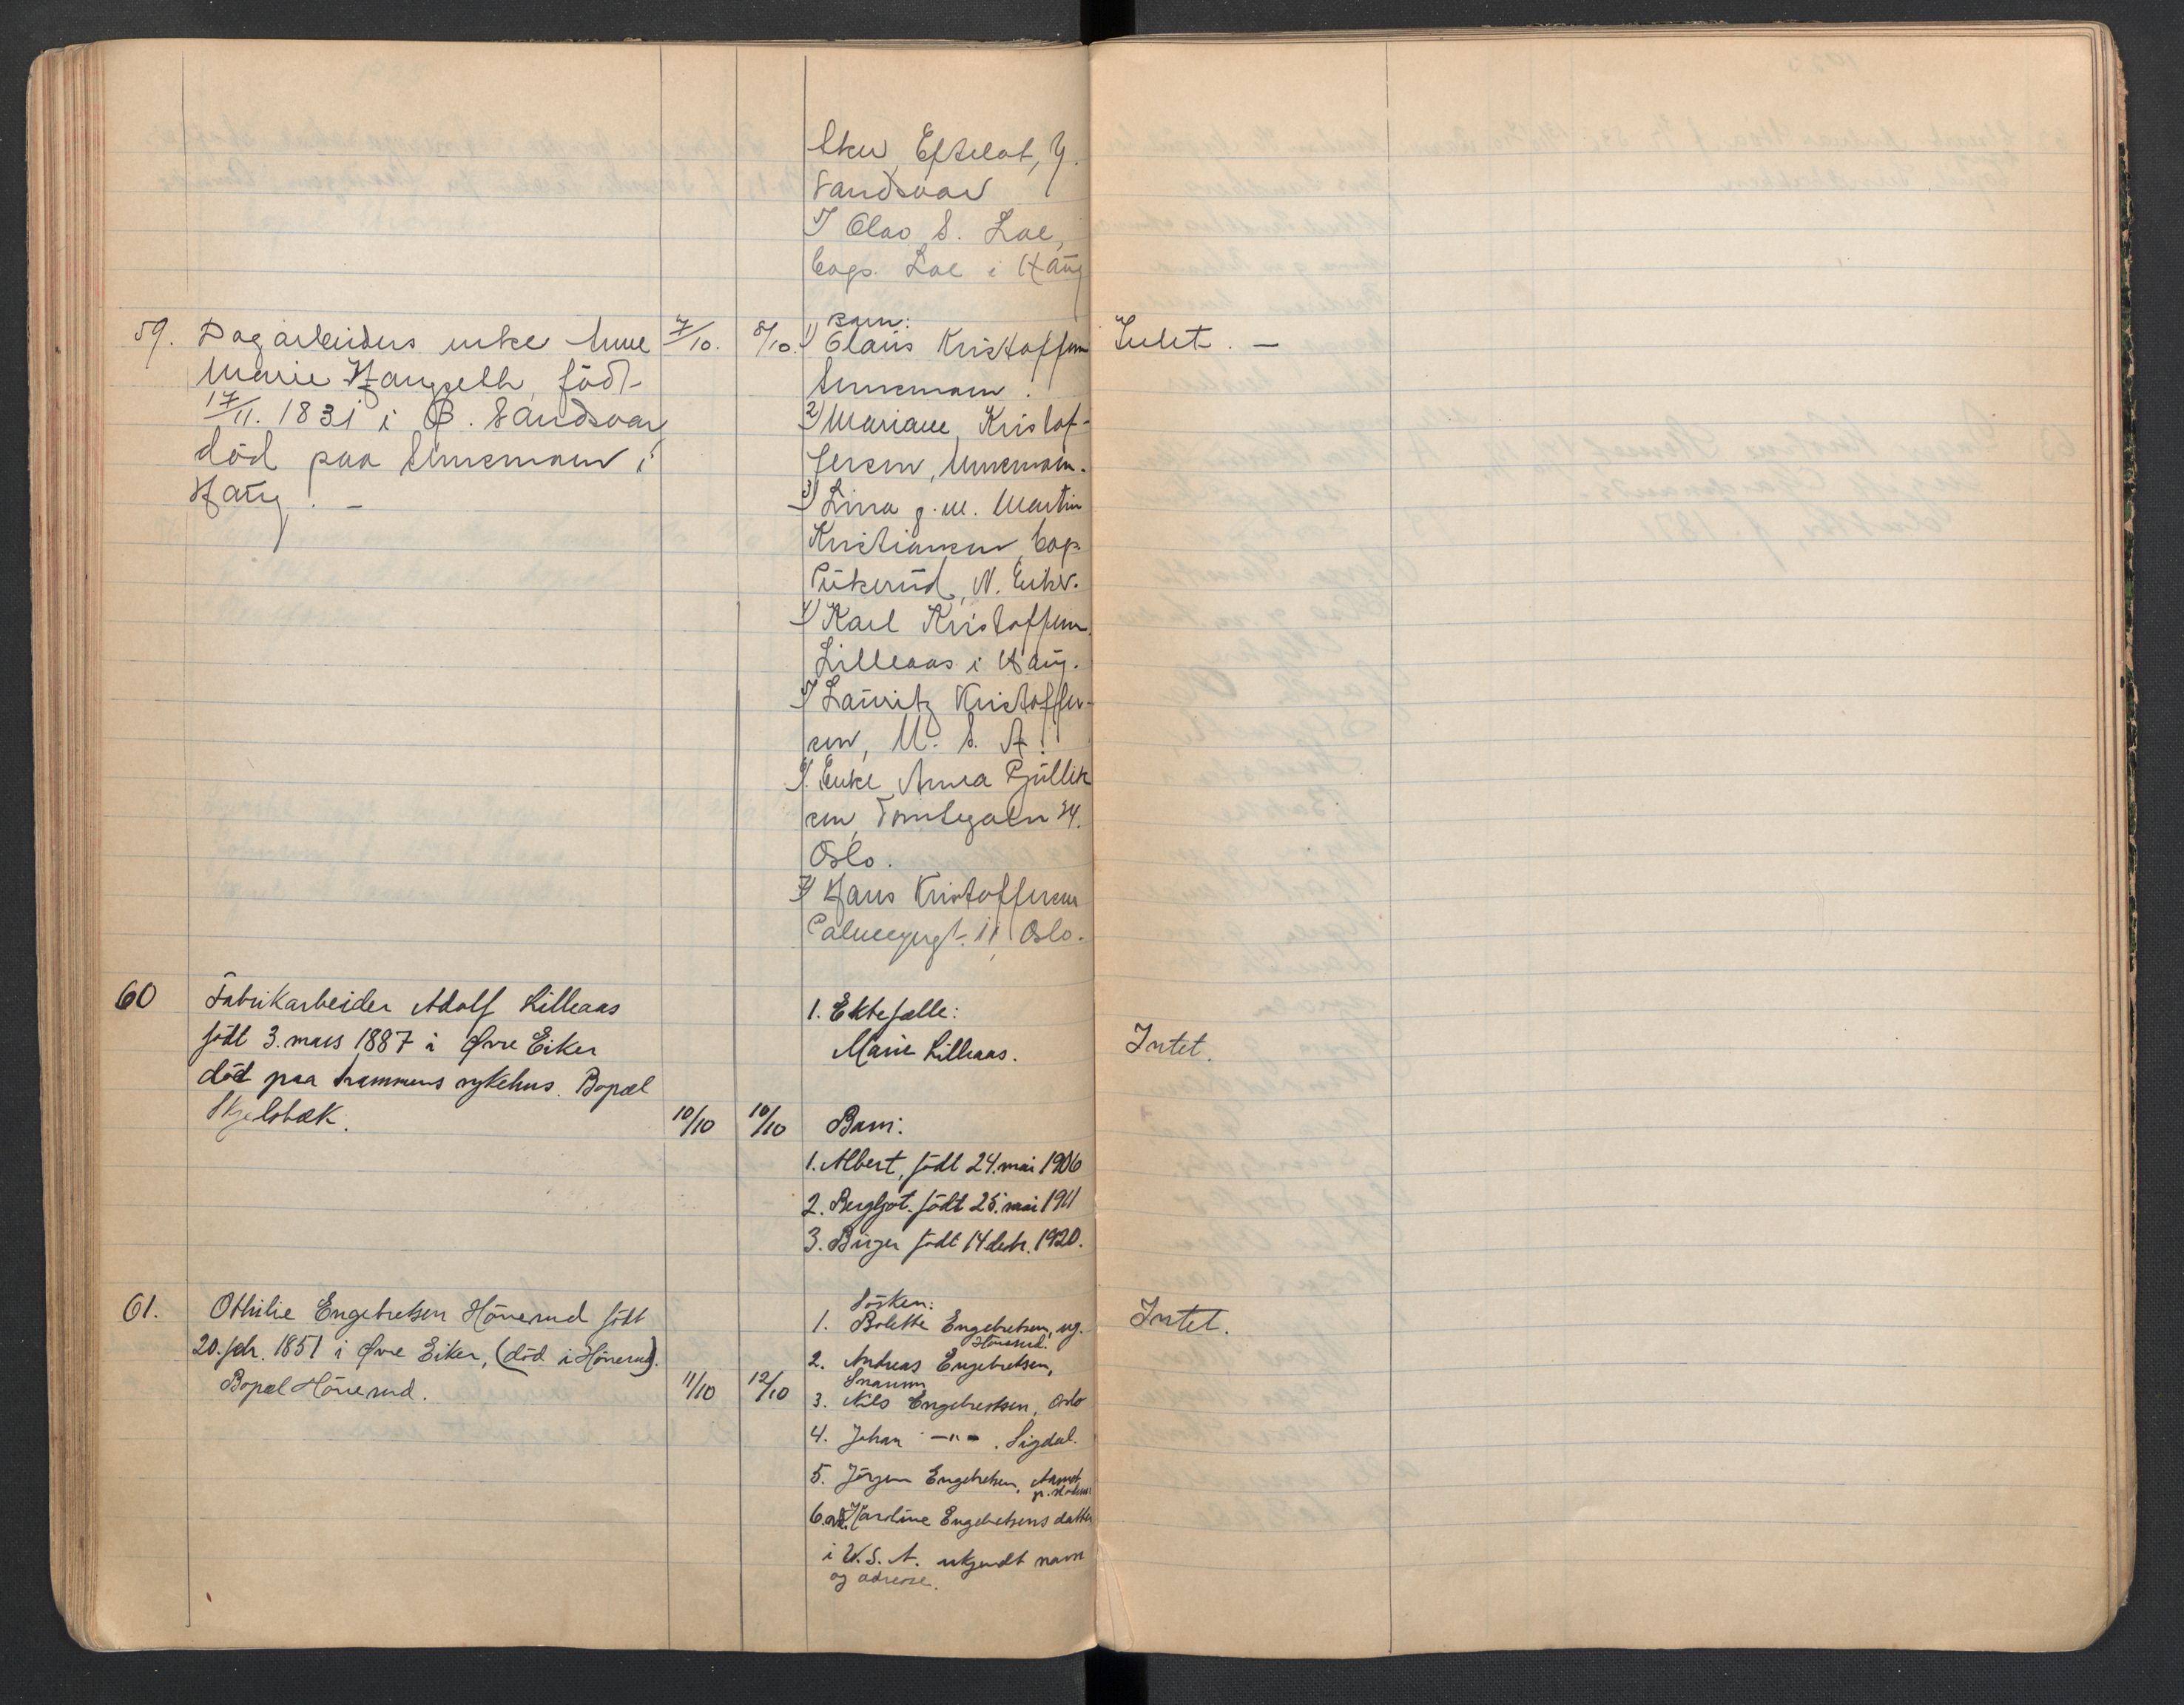 Eftelot, Y.
Sandsvær
5) Olav S. Loe,
bops. Loe i Haug
59. Dagarbeiders enke Anne 7/10. 8/10. Barn:
Marie Haugseth, född
17/11. 1831 i Ö. Sandsvær
död paa i
Haug. –
1) Olaüs Kristoffersen
2) Mariane Kristof-
fersen,
3) Lina g.m. Martin
Kristiansen, bop.
N. Eiker.
4) Karl Kristoffersen
Lilleaas i Haug.
5) Lauritz Kristoffer-
sen, U. S. A.
6) Enke Anna Güllik
sen, Tomtegaten 24.
Oslo.
7) Hans Kristoffersen
11, Oslo.
Intet. –
60 Fabrikarbeider Adolf Lilleaas
född 3. mars 1887 i Øvre Eiker
död paa Drammens sykehus. Bopæl
Skjelsbæk. 10/10 10/10
1. Ektefælle:
Marie Lilleaas.
Barn:
1. Albert, född 24. mai 1906
2. Bergljot. född 25. mai 1911
3. Birger född 14 desbr. 1920.
Intet.
61. Othilie Engebretsen Hönerud född
20. febr. 1851 i Øvre Eiker, (död i Hönerud).
Bopæl Hönerud. 11/10 12/10
Sösken:
1. Bolette Engebretsen, ug.
Hönerud.
2. Andreas Engebretsen,
Snarum
3. Nils Engebretsen, Oslo
4. Johan –"– . Sigdal.
5. Jörgen Engebretsen, Aamot
p. Modum
6. avd. Karoline Engebretsens datter
i U.S.A. ukjendt navn
og adresse.
Intet.